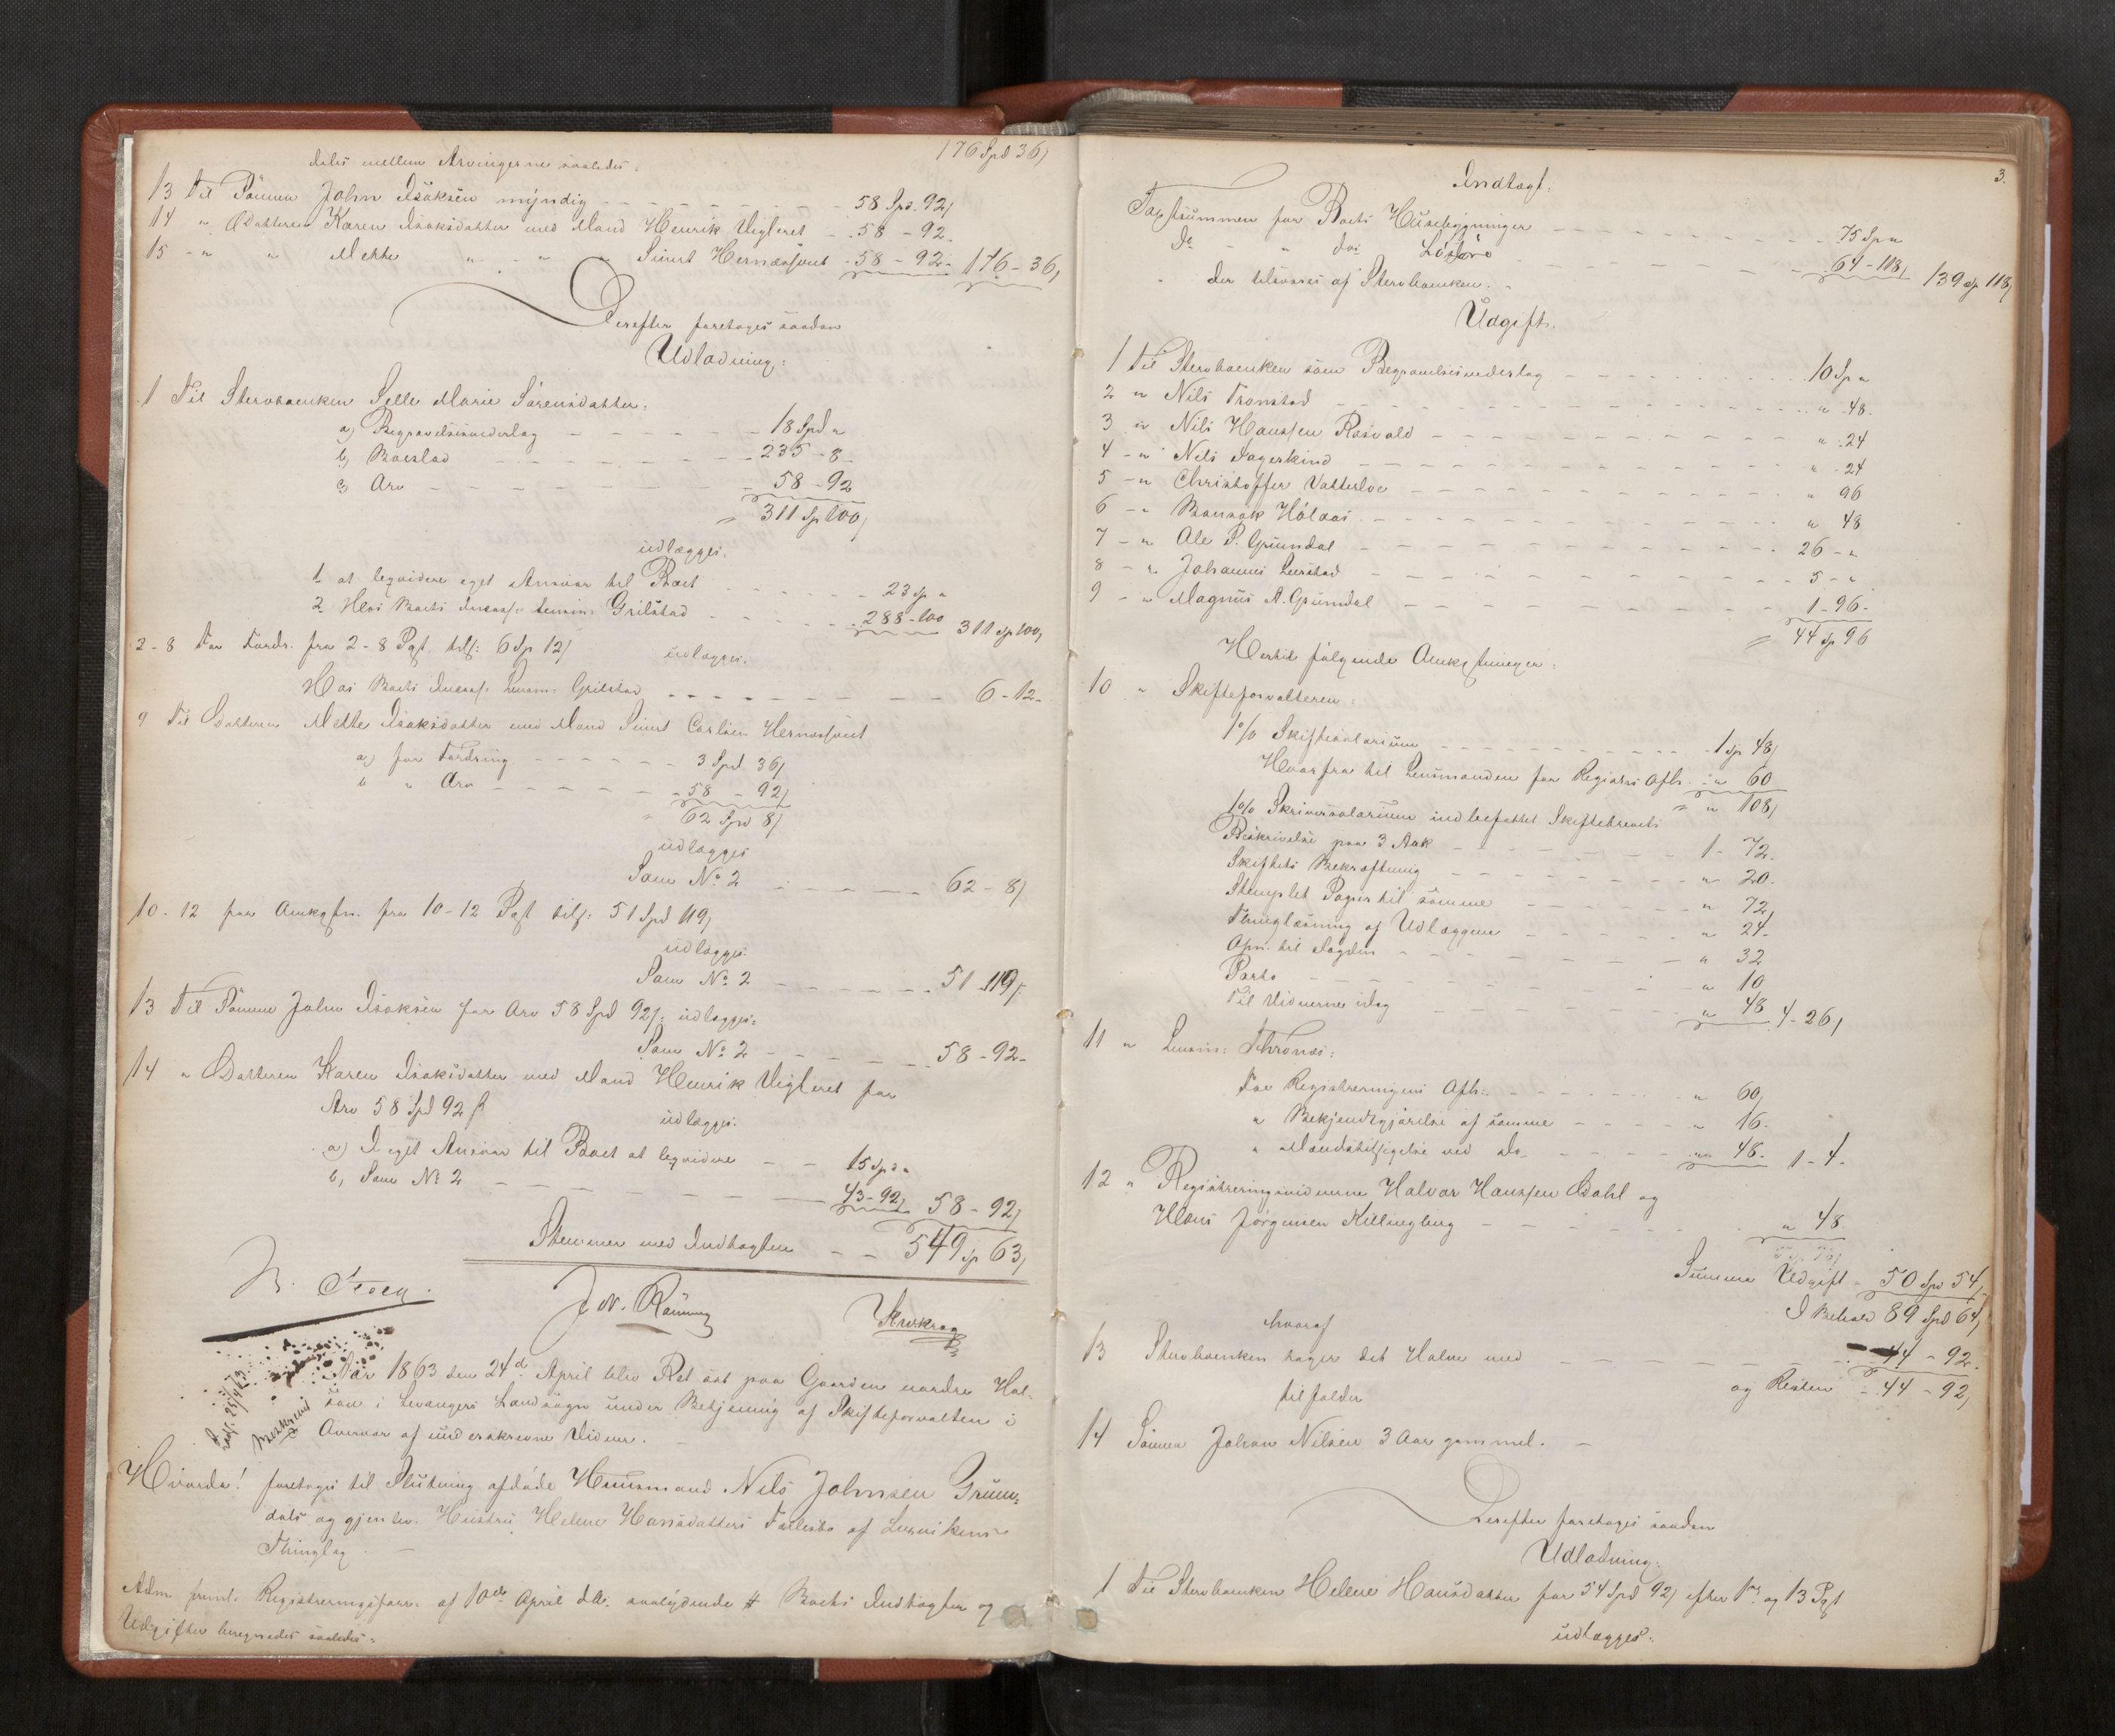 176 Spd 36/
deles mellem Arvingerne saaledes:
13 Til Sønnen John Isaksen myndig - - - 58 Spd. 92/
14 " Datteren Karen Isaksdatter med Mand Henrik Vigleret - 58 - 92.
15 - " " Mette " - " " Simet Hernæshuet - 58 - 92 - 176 - 36/
Derefter foretoges saadan
Udlodning:
1 Til Stervboenken Marie Sørensdatter:
a) Begravelsesvederlag - - - 18 Spd "
b) Boeslod - - - 235 - 8 -
c) Arv - - - 58 - 92
= 311 Sp 100/
udlægges.
1 at leqvidere eget Ansvar til Boet - - - 23 Sp "
2 Hos Boets Incass: Lensm: Grilstad - - - 288 - 100 311 Sp 100/
2 - 8 For Fordr. fra 2 - 8 Post tils: 6 Sp 12/
udlægges.
Hos Boets Incass: Lensm: Grilstad - - - 6 - 12 -
9 Til Datteren Mette Isaksdatter med Mand Simet Carlsen Hernæshuet
a) for Fordring - - - 3 Spd 36/
b " Arv - - - 58 - 92/
" 62 Spd 8/
udlægges
Som No 2 - - - 62 - 8/
10 - 12 for Omkostn. fra 10 - 12 Post tils: 51 Spd 119/
udlægges.
Som No 2 - - - 51 - 119/
13 Til Sønnen John Isaksen for Arv 58 Spd 92/: udlægges:
Som No 2 - - - 58 - 92 -
14 " Datteren Karen Isaksdatter med Mand Henrik Vigleret for
Arv 58 Spd 92 ß
udlægges.
a) I eget Ansvar til Boet at leqvidere - - 15 Spd "
b, Som No 2 - - - 43 - 92, 58 - 92/
Stemmer med Indtægten - - 549 Sp 63/
Aar 1863 den 24d April blev Ret sat paa Gaarden nordre Hal-
san i Levangers Landsogn under Betjening af Skifteforvalteren i
Overvær af underskrevne Vidner.
Hvorda! foretoges til Slutning afdøde Huusmand Nils Johnsen Grun-
dals og gjenlev. Hustru Helene Hansdatters Fællesbo af
Thinglag.
Adm freml. Registreringsforr. af 10de April d.A. saalydende # Boets Indtægter og
Udgifter beregnedes saaledes:
3.
Indtægt:
Taxtsummen for Boets Husebygninger - - - 75 Sp "
Do - " dets Løsøre - - - 64 - 118/ 139 Sp 118/
der tilsvares af Stervboenken.
Udgift.
1 Til Stervboenken som Begravelsesvederlag - - - 10 Sp "
2 " Nils Tronstad - - - " 48.
3 " Nils Hanssen Røsvold - - - " 24
4 - " Nils Fagerkind - - - " 24
5 - " Christoffer Vatterloe - - - " 96
6 - " Høiaas - - - " 48
7 - " Ole P. Grundal - - - 26 - "
8 - " Johannes - - - 5 - "
9 - " Magnus A. Grundal - - - 1 - 96 -
= 44 Sp 96
Hertil følgende Omkostninger:
10 " Skifteforvalteren:
1% Skiftesalarium - - - 1 Sp 48/
Hvorfra til Lensmanden for Registr: Afh. " 60
= " 108/
1% Skriversalarium indbefattet Skiftebrevets
Beskrivelse paa 3 Ark - - - 1 - 72 -
Skiftets Bekræftning - - - " 20.
Stemplet Papir til samme - - - " 72/
Thinglæsning af Udlæggene - - - " 24 -
Opn. til Fogden - - - " 32
Porto - - - " 10
Til Vidnerne idag - - - " 48 4 - 26/
11 " Lensm: Thrones:
For Registreringens Afh: - - - " 60/
" Bekjendtgjørelse af samme - - - " 16 -
" Mandstilsigelse ved do - - - " 48 - 1 - 4 -
12 " Registreringsvidnerne Halvor Hanssen Dahl og
Hans Jørgensen Killingberg - - - " 48
Summa Udgift - 50 Spd 54/
I Behold 89 Spd 64/
hvoraf
13 Stervboenken tager det Halve med - - - 44 - 92.
og Resten - 44 - 92/
tilfalder
14 Sønnen Johan Nilsen 3 Aar gammel. -
Derefter foretoges saadan
Udlodning:
1 Til Stervboenken Helene Hansdatter for 54 Spd 92/ efter 1ste og 13 Post
udlægges: